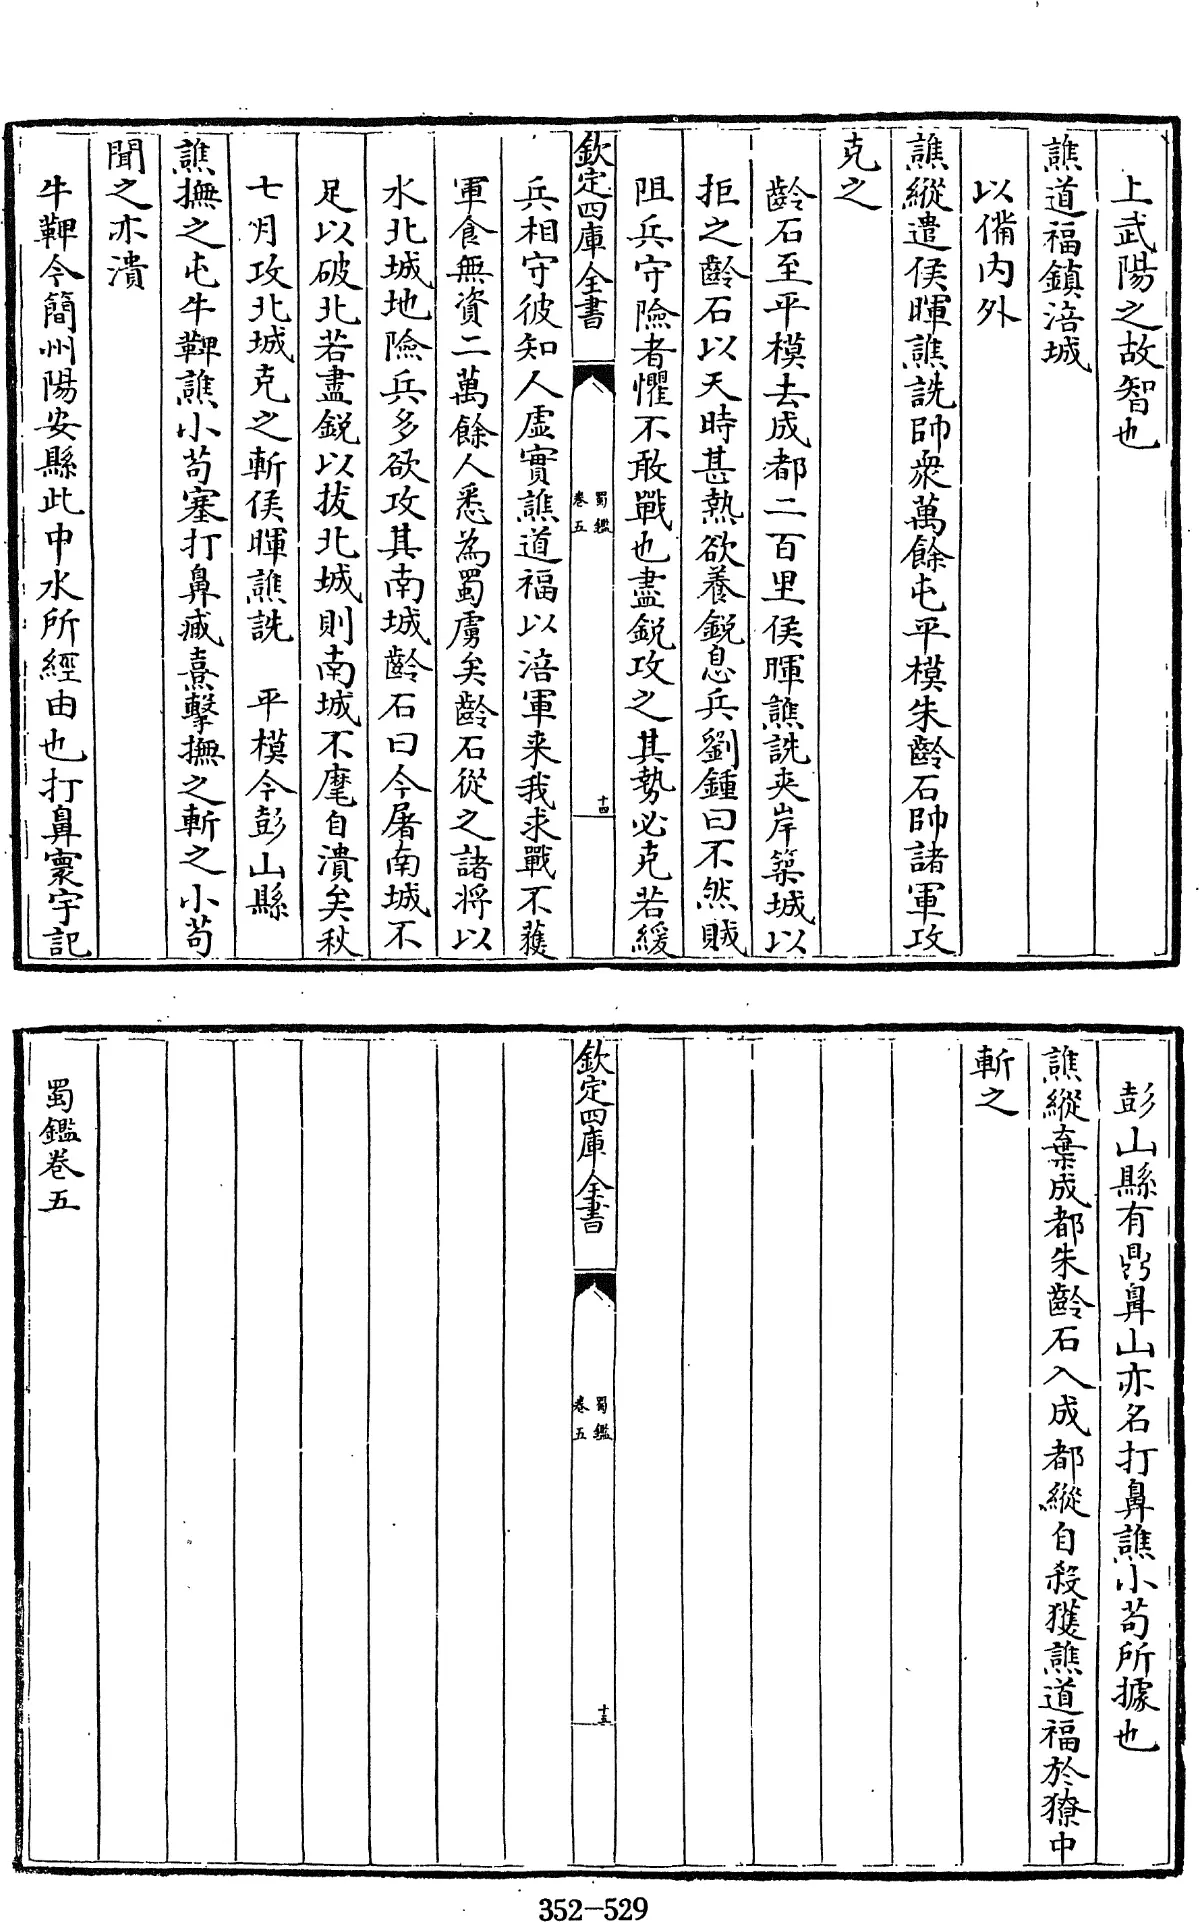 上武陽之故智也
譙道福鎮涪城
以備內外
譙縱遣侯暉譙詵帥衆萬餘屯平模朱齡石帥諸軍攻
克之
齡石至平模去成都二百里侯暉譙詵夾岸築城以
拒之齡石以天時甚熱欲養鋭息兵劉鍾曰不然賊
阻兵守險者懼不敢戰也盡鋭攻之其勢必克若緩
欽定四庫全書
蜀鑑
卷五
十四
兵相守彼知人虛實譙道福以涪軍来我求戰不獲
軍食無資二萬餘人悉為蜀虜矣齡石從之諸將以
水北城地險兵多欲攻其南城齡石曰今屠南城不
足以破北若盡鋭以拔北城則南城不麾自潰矣秋
七月攻北城克之斬侯暉譙詵 平模今彭山縣
譙撫之屯牛鞞譙小苟塞打鼻臧熹擊撫之斬之小苟
聞之亦潰
牛鞞今簡州陽安縣此中水所經由也打鼻寰宇記
彭山縣有鼎鼻山亦名打鼻譙小苟所據也
譙縱棄成都朱齡石入成都縱自殺獲譙道福於獠中
斬之
欽定四庫全書
蜀鑑
卷五
十五
蜀鑑卷五
352-529